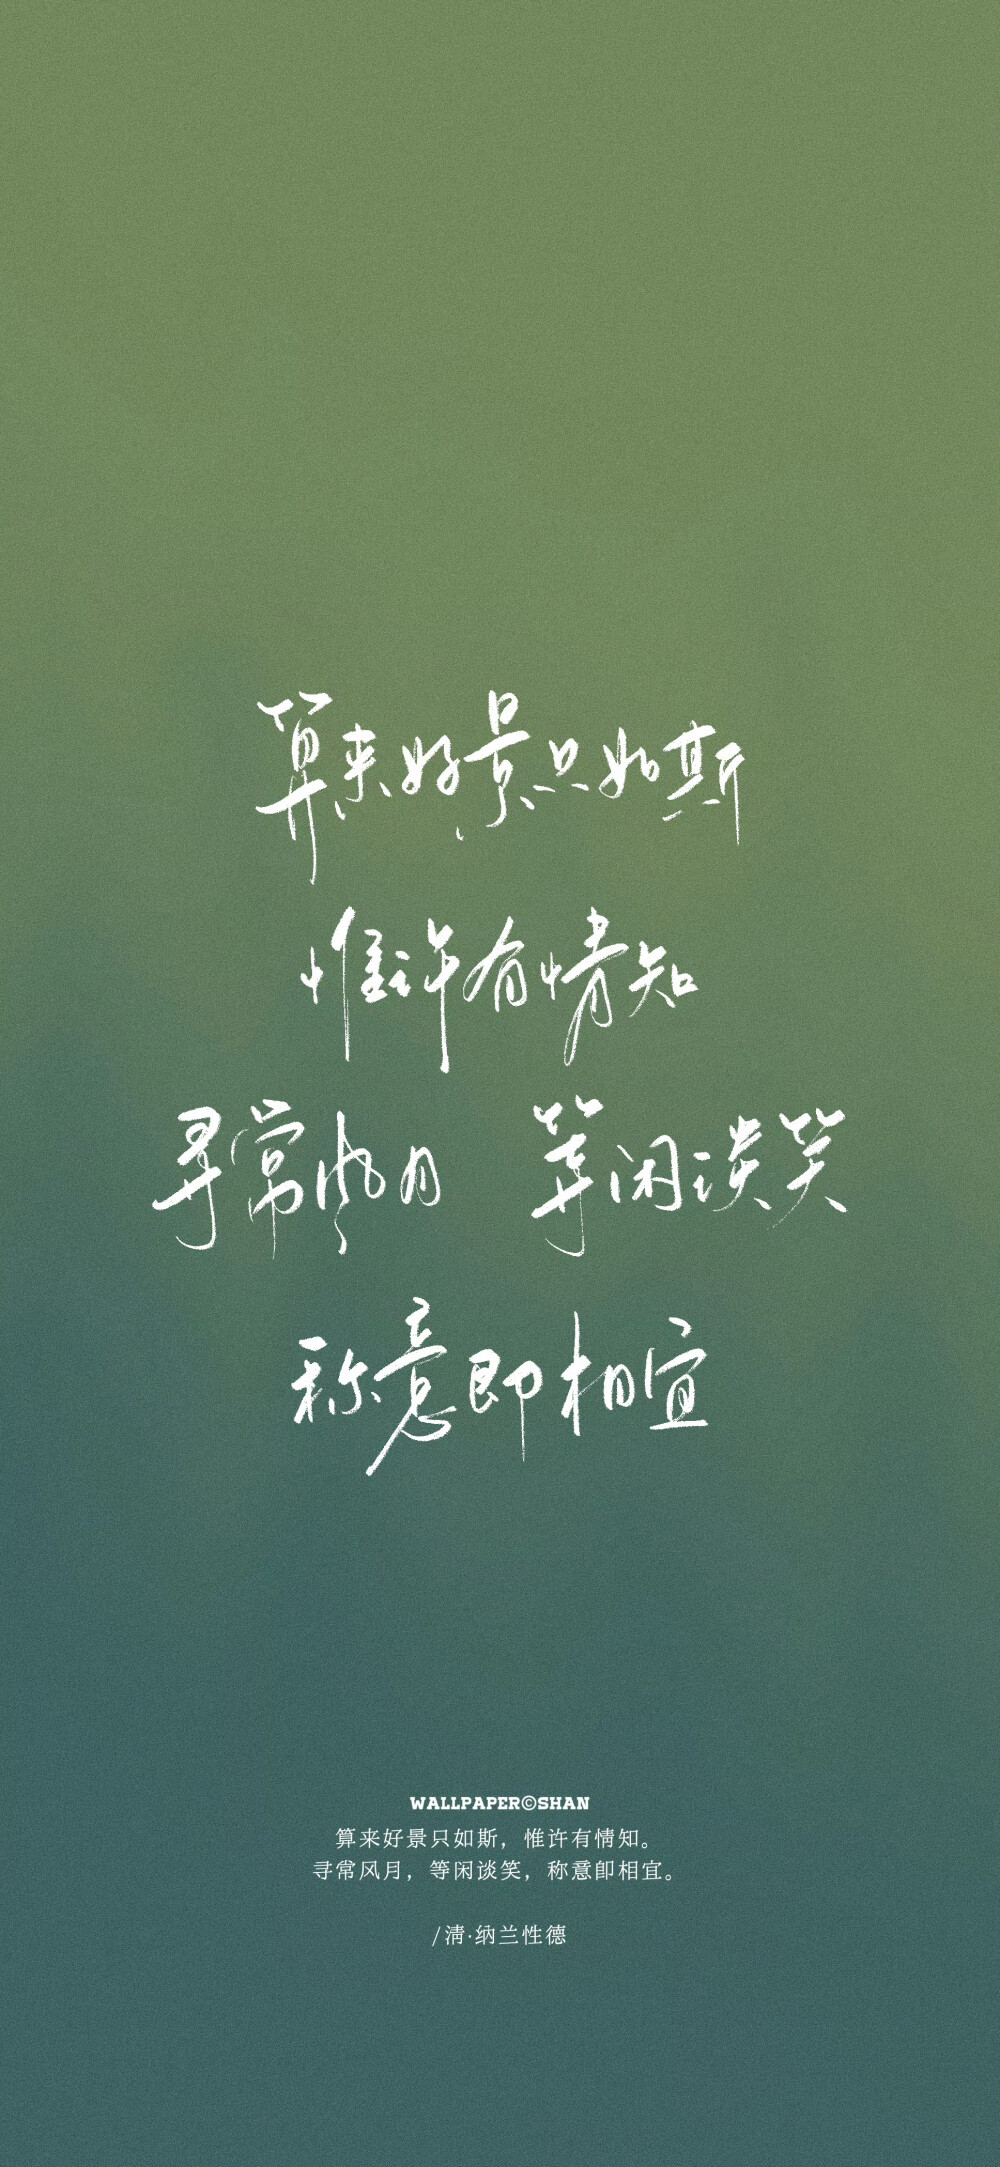 算来好景只如斯
惟许有情知
寻常风月 等闲谈笑
称意即相宜
WALLPAPER©SHAN
算来好景只如斯，惟许有情知。
寻常风月，等闲谈笑，称意即相宜。
/清·纳兰性德